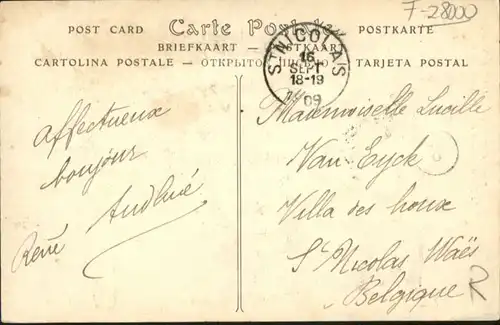 F-28000
POST CARD Carte Postale POSTKARTE
BRIEFKAART POSTKAART
CARTOLINA POSTALE — ОТКРЫТОЕ ПИСЬМО — TARJETA POSTAL
ST NICOLAS
16
SEPT
18-19
09
Affectueux
bonjour
René
Mademoiselle Lucille
Van Eyck
Villa des houx
St Nicolas Waës
Belgique
R